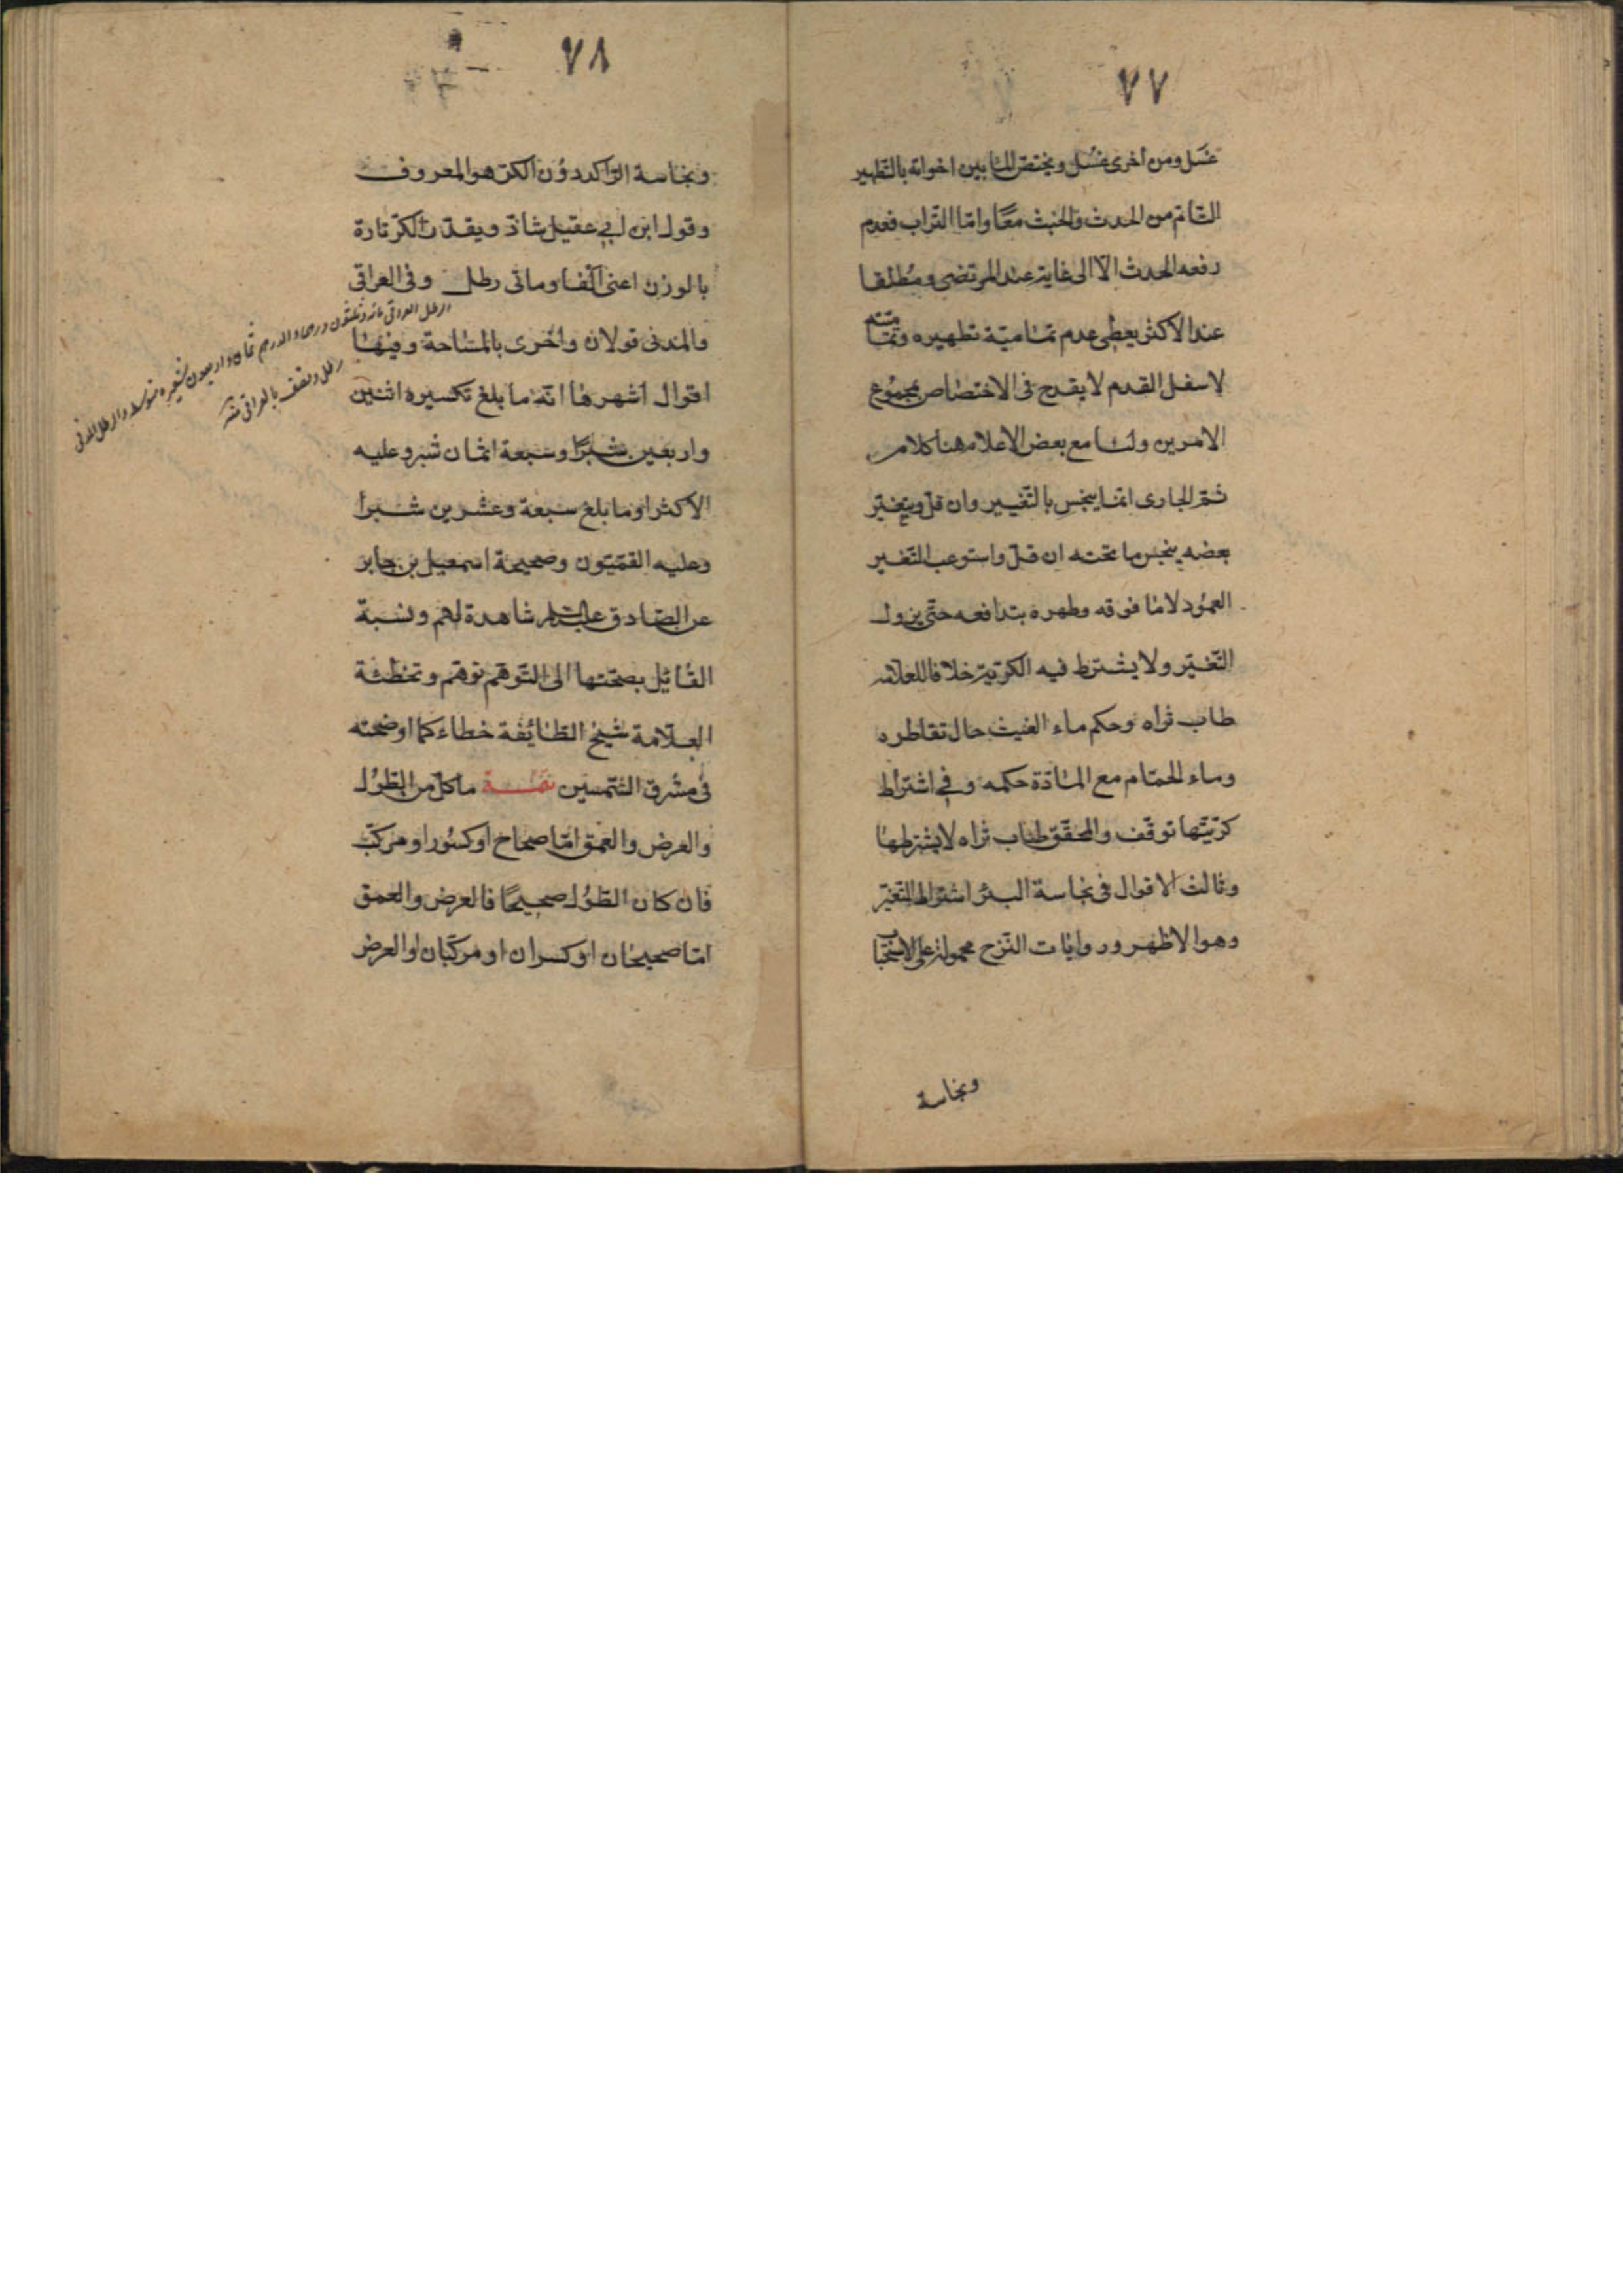 ٧٧
غسل ومن اخرى غسل ويختص الماء بين اخواته بالتطهير
التام من الحدث والخبث معًا واما التراب فعدم
رفعه الحدث الا الى غاية عند المرتضى ومطلقا
عند الاكثر يعطى عدم تمامية تطهيره وتماميته
لاسفل القدم لا يقدح فى الاختصاص بمجموع
الامرين ولنا مع بعض الاعلام هنا كلام
ثم الجارى انما ينجس بالتغيير وان قل وبتغير
بعضه ينجس ما تحته ان قل واستوعب التغيير
العمود لا ما فوقه وطهره بتدافعه حتى يزول
التغير ولا يشترط فيه الكرية خلافا للعلامه
طاب ثراه وحكم ماء الغيث حال تقاطره
وماء الحمام مع المادة حكمه وفي اشتراط
كريتها توقف والمحقق طاب ثراه لا يشترطها
وثالث الاقوال فى نجاسة البئر اشتراط التغير
وهو الاظهر وروايات النزح محمولة على الاستحباب
ونجاسة
٧٨
ونجاسة الراكد دون الكر هو المعروف
وقول ابن ابي عقيل شاذ ويقدر الكر تارة
بالوزن اعنى الفا ومائتى رطل وفى العراقى
والمدنى قولان واخرى بالمساحة وفيها
اقوال اشهرها انه ما بلغ تكسيره اثنين
واربعين شبرًا وسبعة اثمان شبر وعليه
الاكثر او ما بلغ سبعة وعشرين شبرا
وعليه القميون وصحيحة اسمعيل بن جابر
عن الصادق عليه السلام شاهدة لهم ونسبة
القائل بصحتها الى التوهم توهم وتخطئة
العلامة شيخ الطائفة خطاء كما اوضحته
فى مشرق الشمسين تتمة ما كل من الطول
والعرض والعمق اما صحاح او كسور او مركب
فان كان الطول صحيحًا فالعرض والعمق
اما صحيحان او كسران او مركبان او العرض
الرطل العراقى مائة وثلثون درهما والدرهم ثمان واربعون شعيرة متوسطة والرطل المدنى
رطل ونصف بالعراقى منه